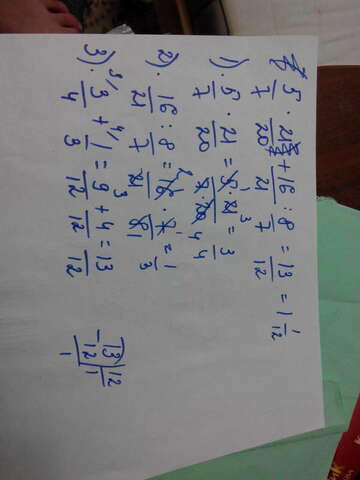 5/7 · 21/20 + 16/21 : 8/7 = 13/12 = 1 1/12
1). 5/7 · 21/20 = 5·21/7·20 = 3/4
2). 16/21 : 8/7 = 16/21 · 7/8 = 1/3
3). 3/4 + 1/3 = 9/12 + 4/12 = 13/12
13 12
-12 1
1